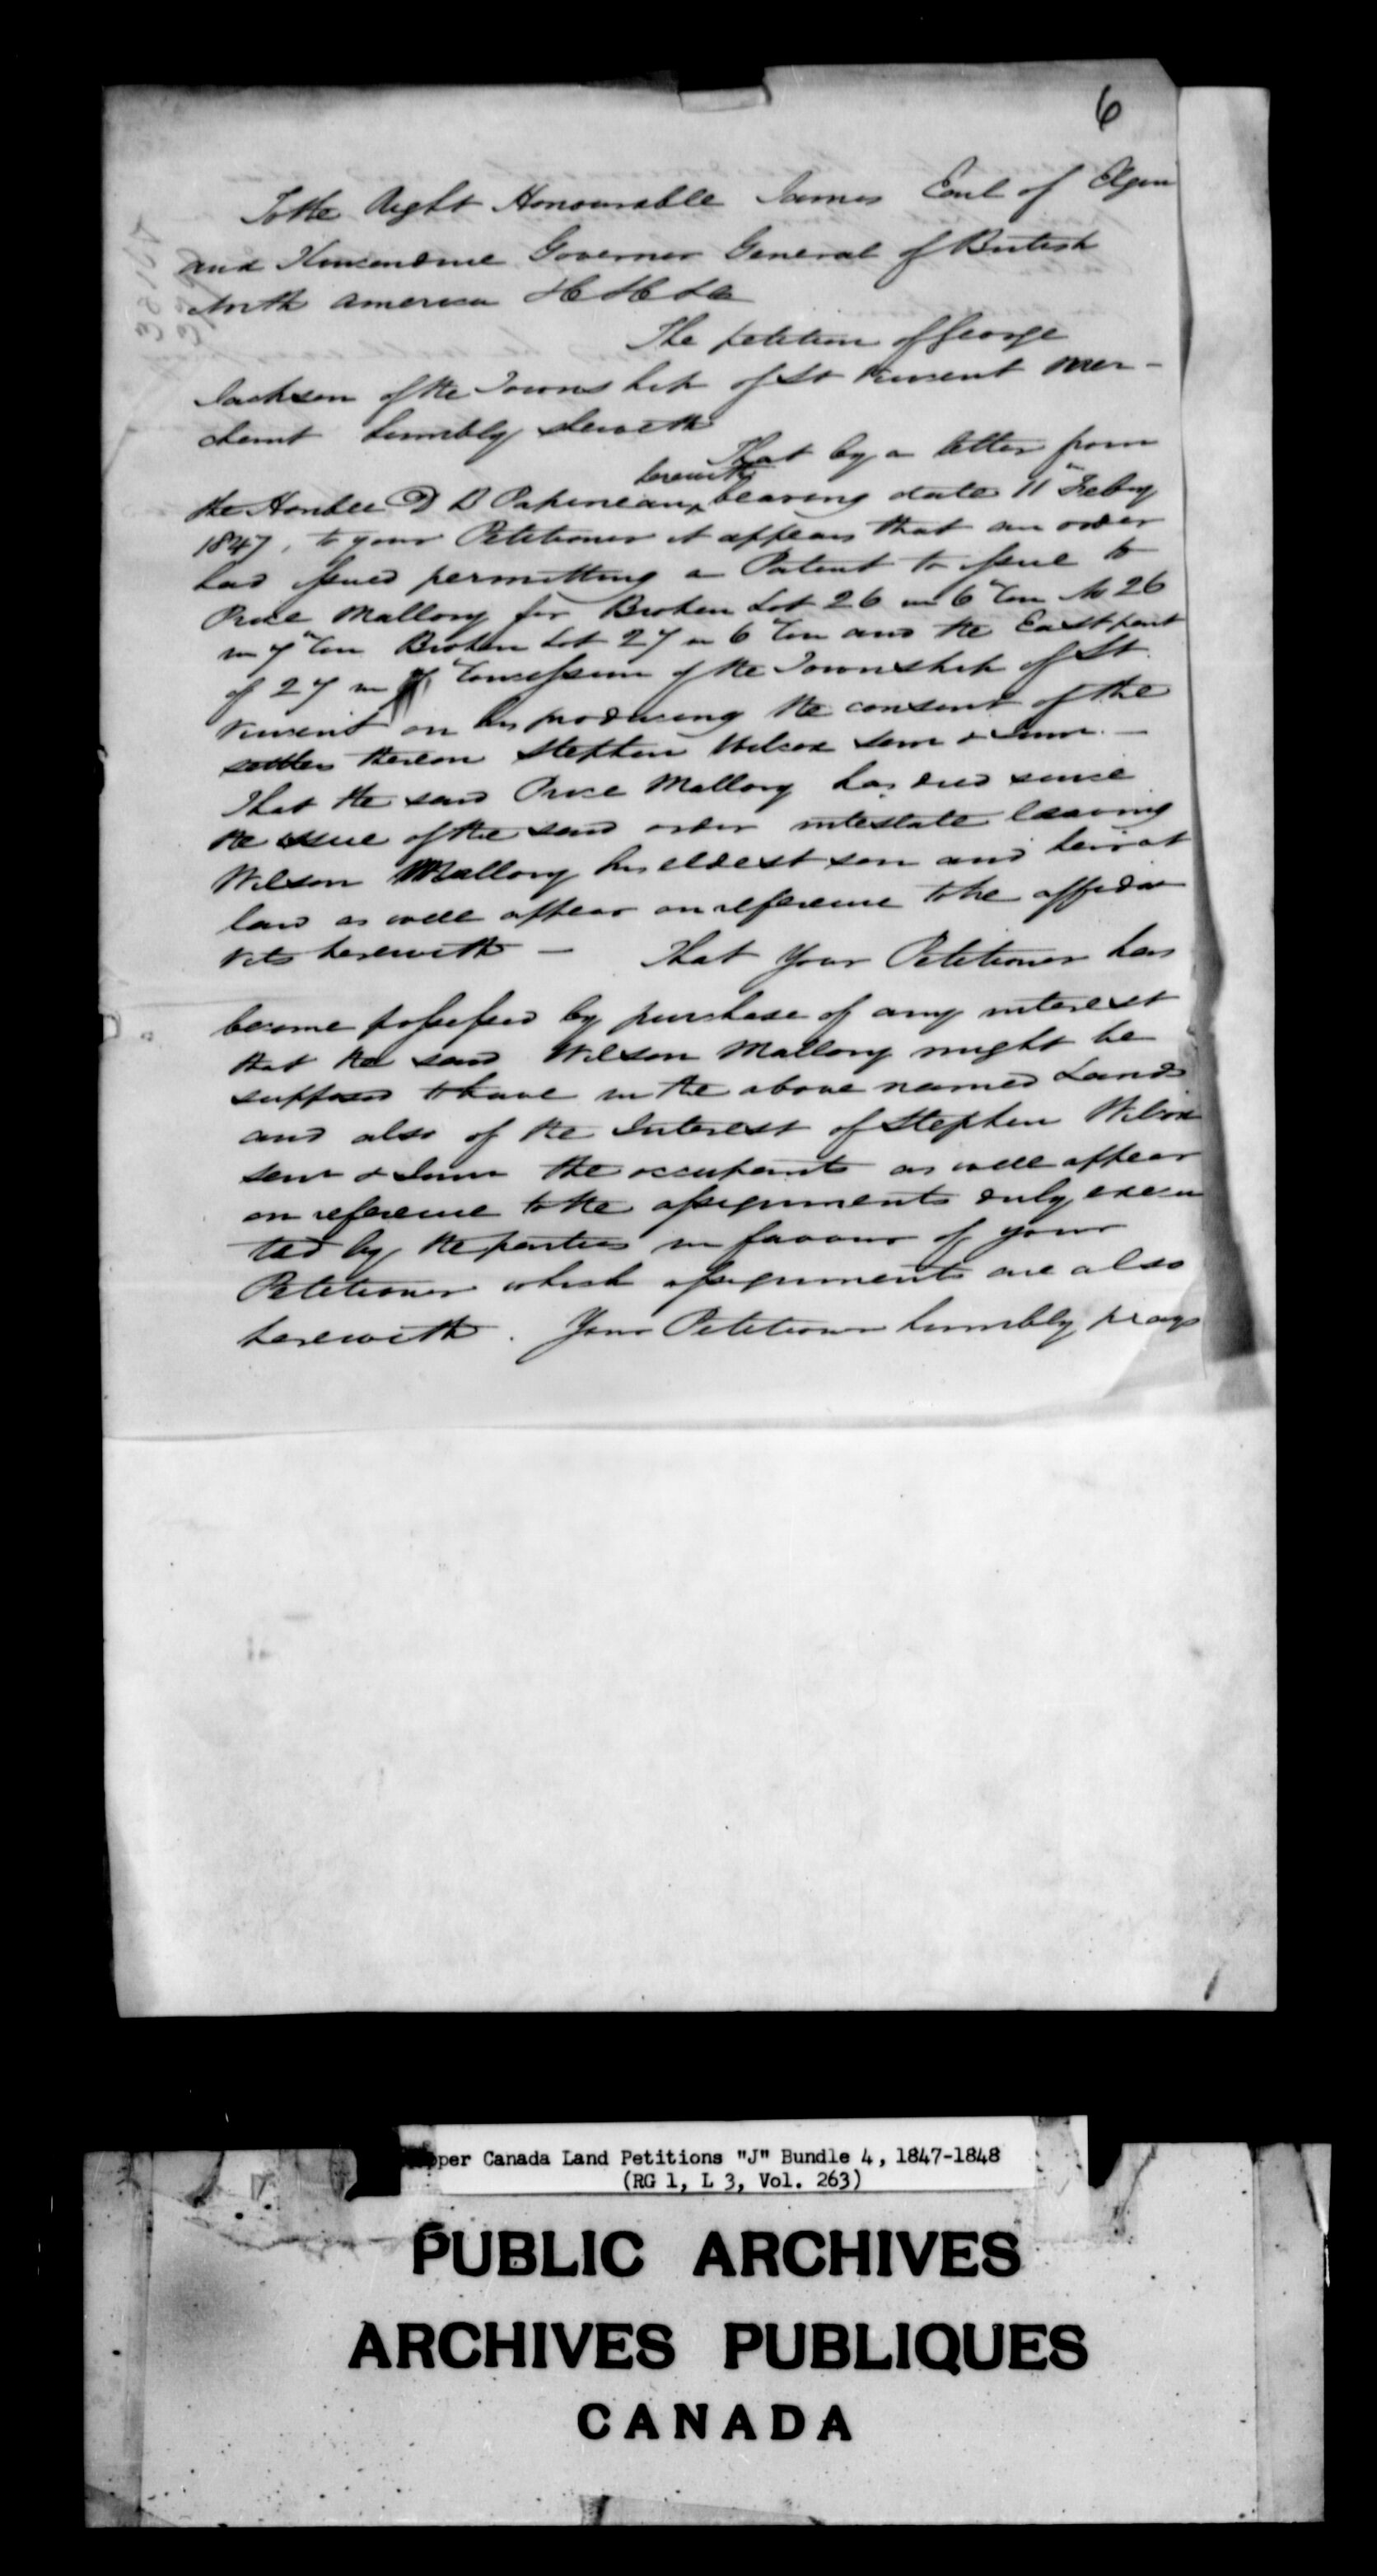 6
To the Right Honourable James Earl of Elgin
and Kincardine Governor General of British
North America &c &c &c
The petition of George
Jackson of the Township of St Vincent Mer-
chant humbly sheweth
That by a letter from
herewith
the Honble D B Papineau, bearing date 11th Feby
1847, to your Petitioner it appears that an order
had issued permitting a Patent to issue to
Price Mallory for Broken Lot 26 in 6th Con No 26
in 7th Con Broken Lot 27 in 6th Con and the East part
of 27 in 7th Concession of the Township of St.
Vincent on his producing the consent of the
settlers thereon Stephen Wilcox Senr & Junr. —
That the said Price Mallory has died since
the issue of the said order intestate leaving
Wilson Mallory his eldest son and heir at
law as will appear on reference to the affida
vits herewith — That Your Petitioner has
become possessed by purchase of any interest
that the said Wilson Mallory might be
supposed to have in the above named Lands
and also of the Interest of Stephen Wilcox
Senr & Junr the occupants as will appear
on reference to the assignments duly execu
ted by the parties in favour of your
Petitioner which assignments are also
herewith. Your Petitioner humbly prays
pper Canada Land Petitions "J" Bundle 4, 1847-1848
(RG 1, L 3, Vol. 263)
PUBLIC ARCHIVES
ARCHIVES PUBLIQUES
CANADA